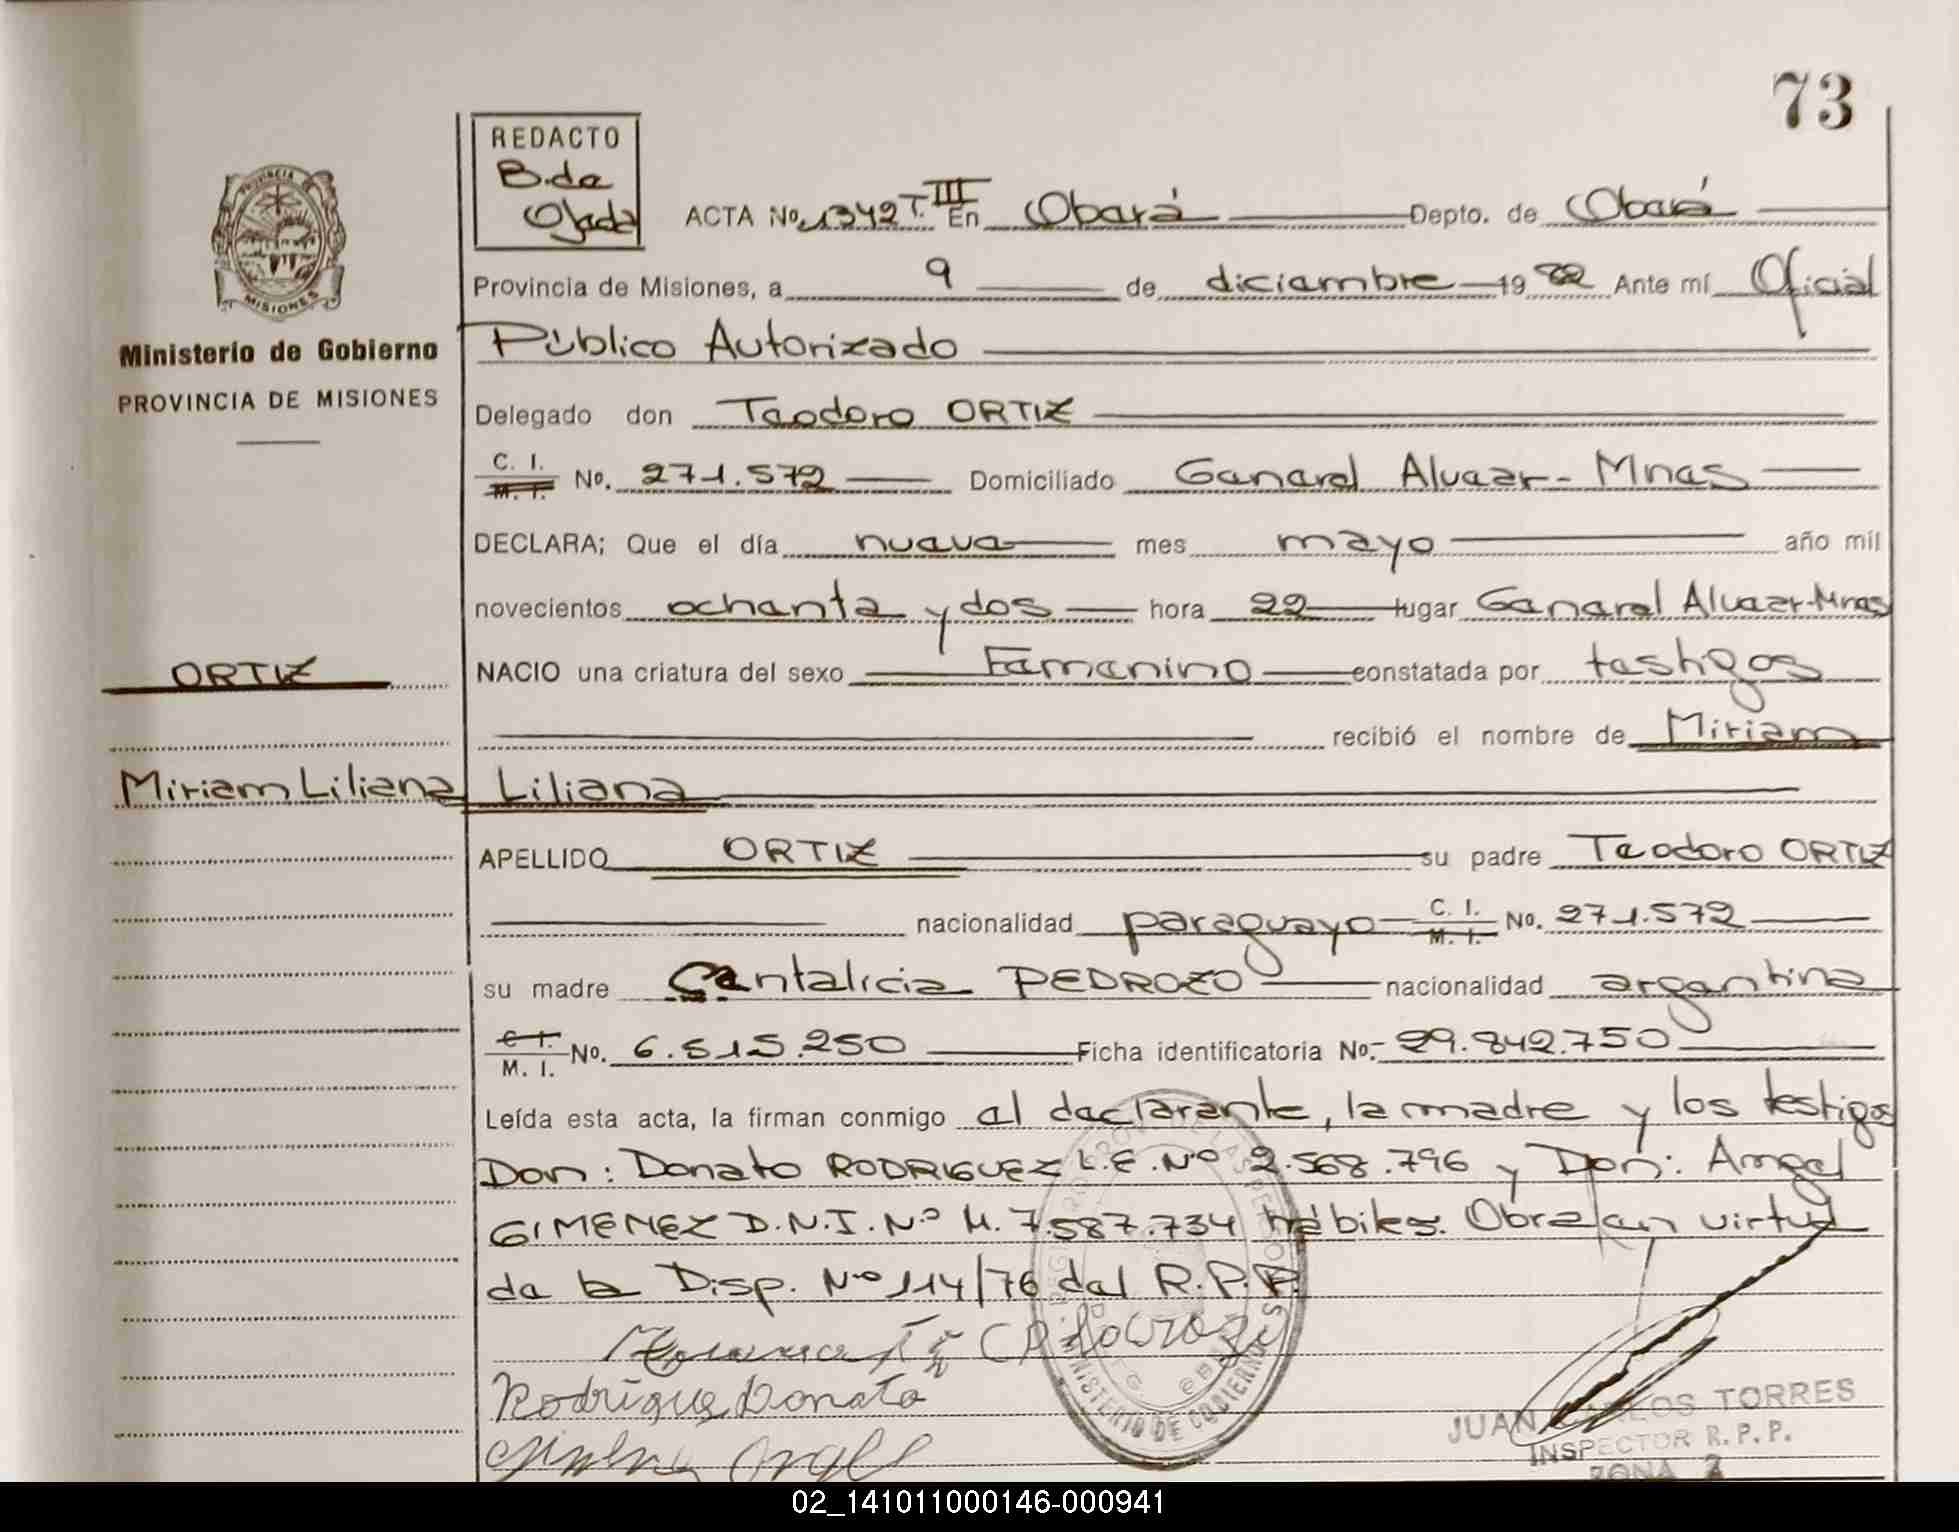 73
REDACTO
B. de
Ojeda
ACTA No. 1342 T. III En Oberá Depto. de Oberá
PROVINCIA DE
MISIONES
Provincia de Misiones, a 9 de diciembre 1982 Ante mí Oficial
Ministerio de Gobierno
Público Autorizado
PROVINCIA DE MISIONES
Delegado don Teodoro ORTIZ
C. I.
M. I. No. 271.572 Domiciliado General Alvear - Mnes
DECLARA; Que el día nueve mes mayo año mil
novecientos ochenta y dos hora 22 lugar General Alvear-Mnes
ORTIZ
NACIO una criatura del sexo Femenino constatada por testigos
recibió el nombre de Miriam
Miriam Liliana
Liliana
APELLIDO ORTIZ su padre Teodoro ORTIZ
nacionalidad paraguayo C. I. M. I. No. 271.572
su madre Cantalicia PEDROZO nacionalidad argentina
C. I.
M. I. No. 6.515.250 Ficha identificatoria No.- 29.842.750
Leída esta acta, la firman conmigo el declarante, la madre y los testigos
Don: Donato RODRIGUEZ L.E. Nº 2.568.796 y Don: Angel
GIMENEZ D.N.I. Nº M. 7.587.734 hábiles. Obra en virtud
de la Disp. Nº 114/76 del R.P.P.
Donato
MINISTERIO DE GOBIERNO
JUAN CARLOS TORRES
INSPECTOR R. P. P.
ZONA 2
02_141011000146-000941